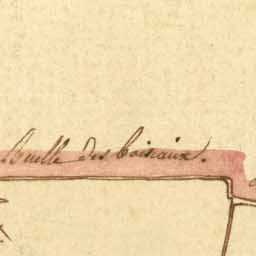 Ruelle des Coiseaux.